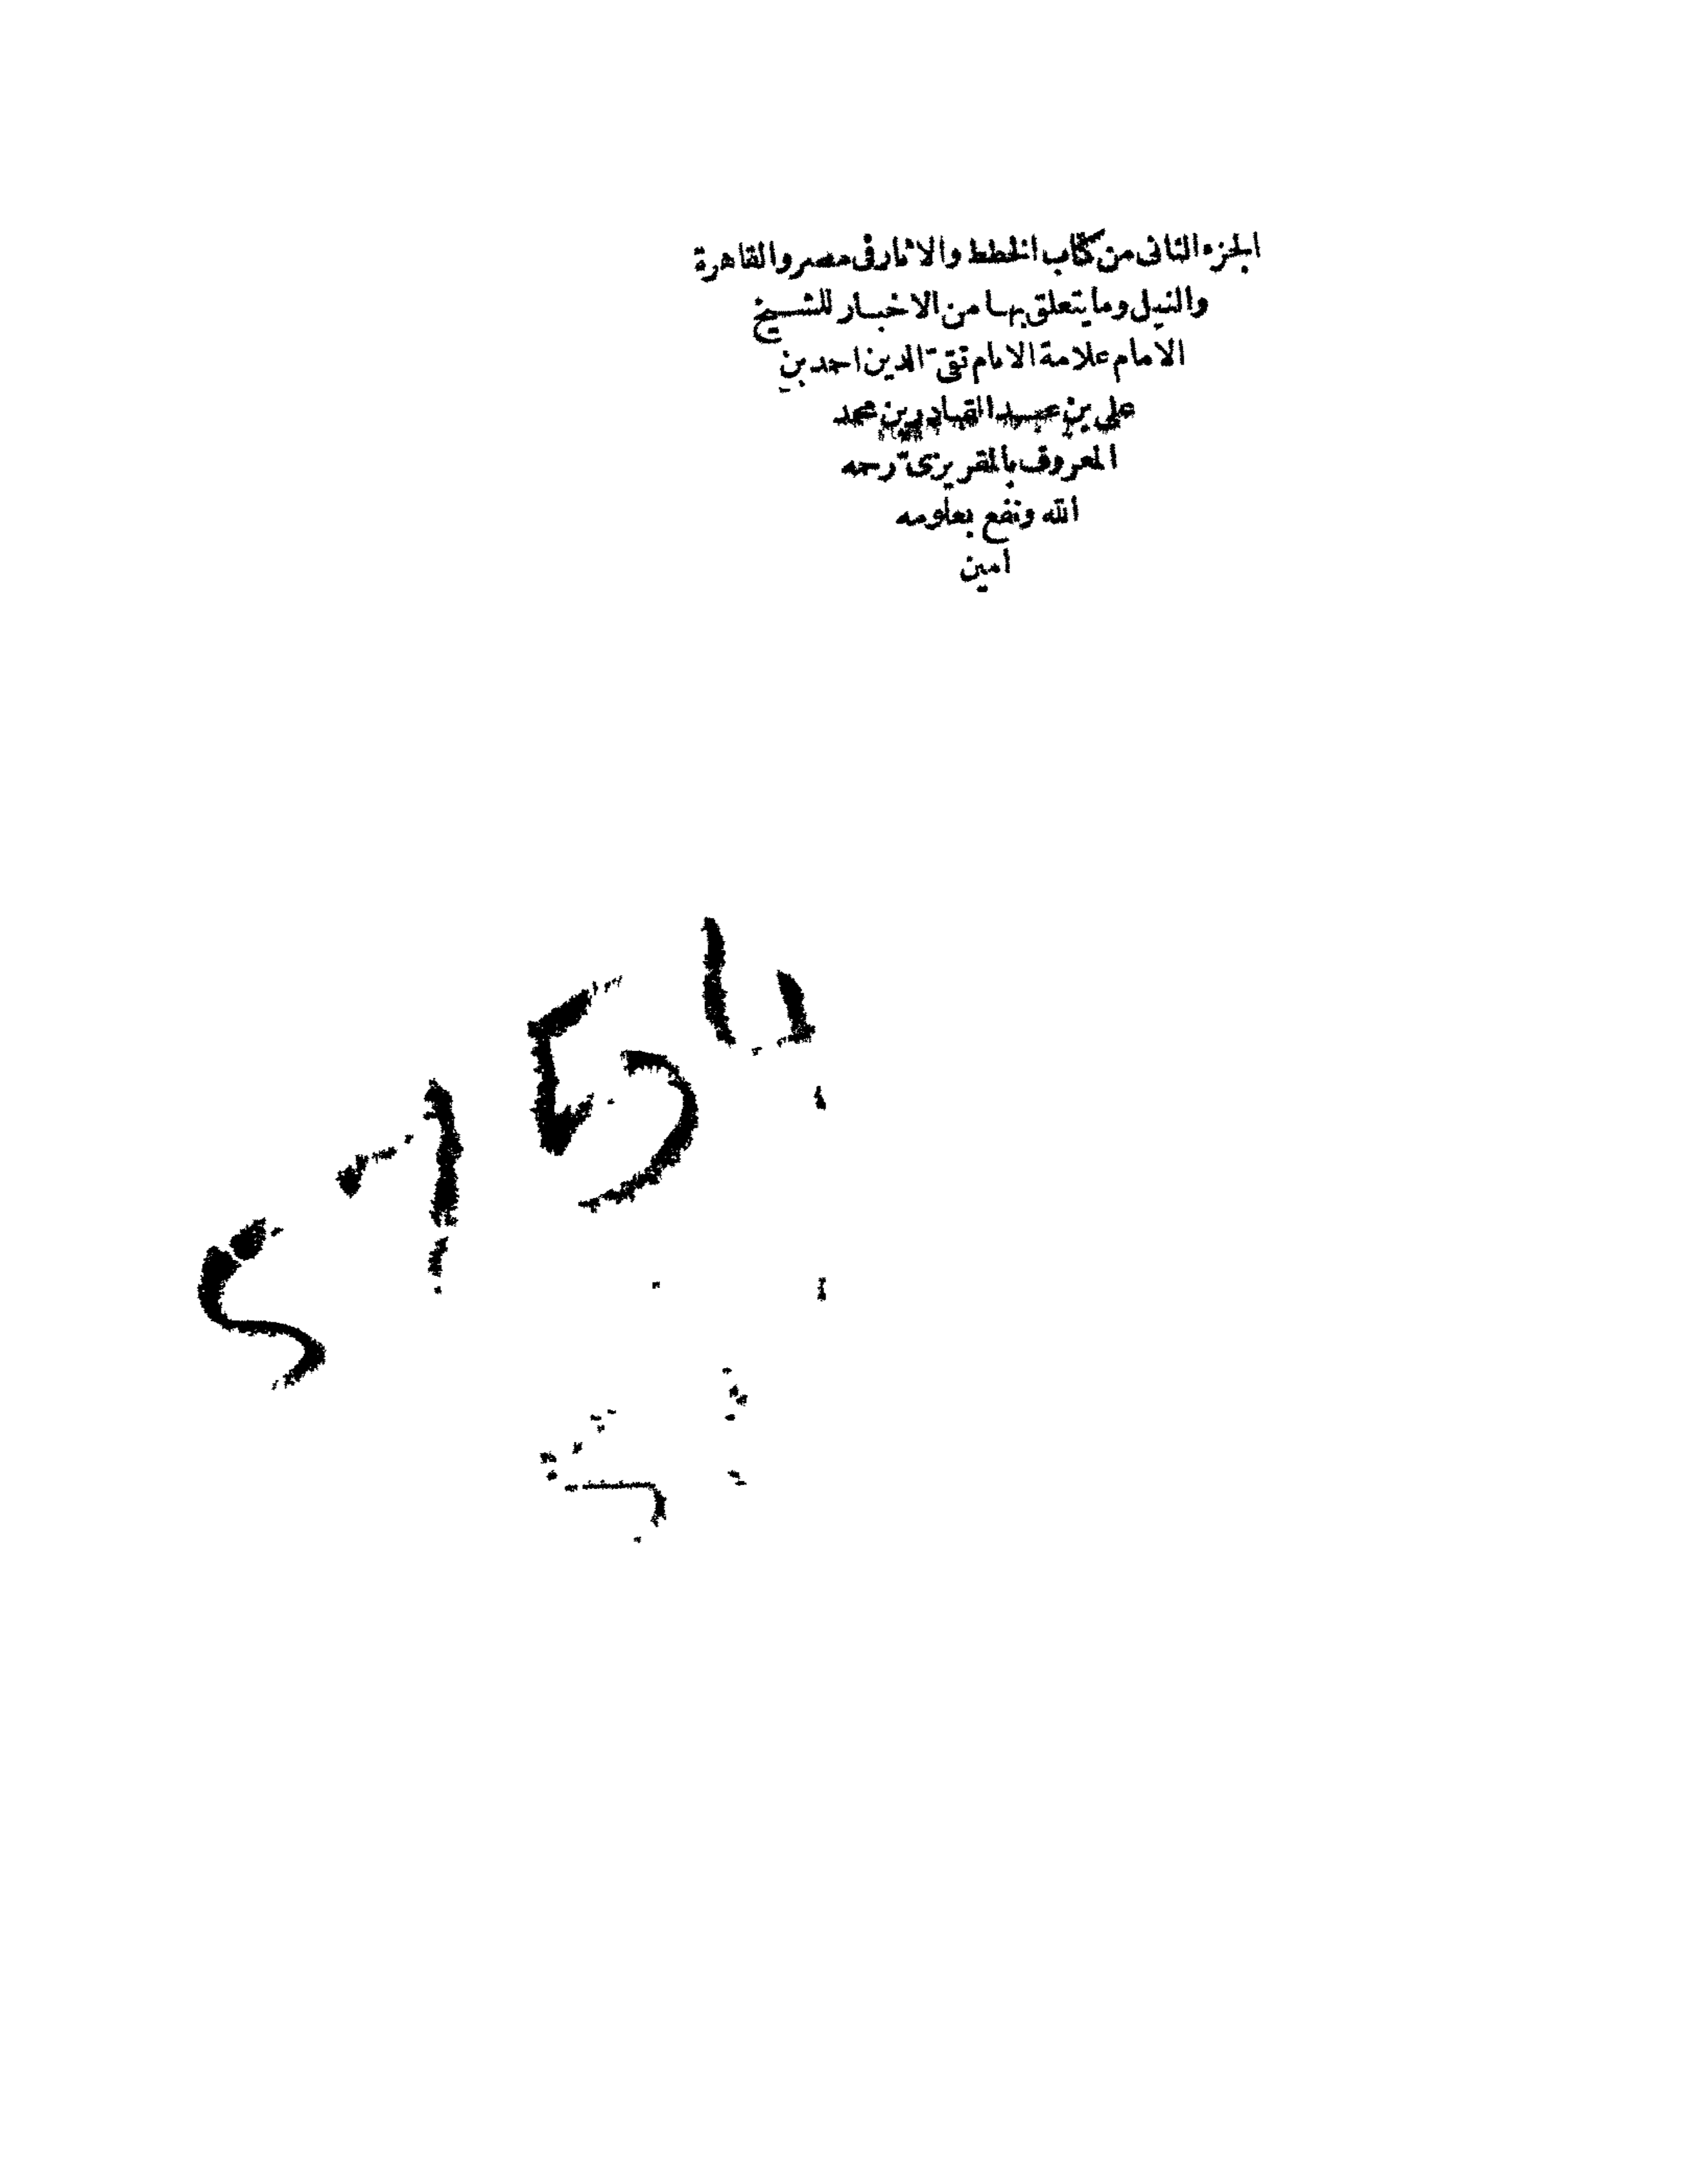 الجزء الثانى من كتاب الخطط والاثار فى مصر والقاهرة
والنيل وما يتعلق بها من الاخبار للشيخ
الامام علامة الانام تقى الدين احمد بن
على بن عبد القادر بن محمد
المعروف بالمقريزى رحمه
الله ونفع بعلومه
امين
5154